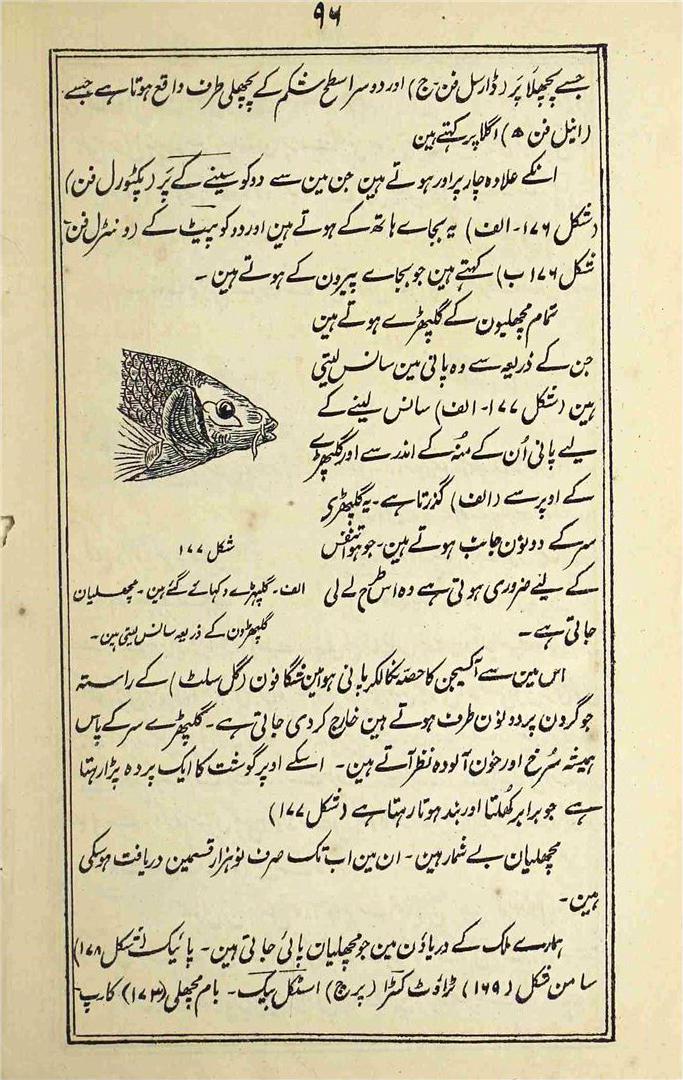 ۹۵
جسے پچھلا پَر (ڈارسل فن - ج) اور دوسرا سطح شکم کے پچھلی طرف واقع ہوتا ہے جسے
(اینل فن ھ) اگلا پر کہتے ہین
انکے علاوہ چار پر اور ہوتے ہین جن مین سے دو کو سینے کے پَر (پکٹورل فن)
(شکل ۱۷۶ - الف) یہ بجاے ہاتھ کے ہوتے ہین اور دو کو پیٹ کے (ونٹرل فن -
شکل ۱۷۶ ب) کہتے ہین جو بجاے پیرون کے ہوتے ہین -
تمام مچھلیون کے گلپھڑے ہوتے ہین
جن کے ذریعہ سے وہ پانی مین سانس لیتی
ہین (شکل ۱۷۷ - الف) سانس لینے کے
لیے پانی اُن کے منُہ کے اندر سے اور گلپھڑے
کے اوپر سے (الف) گذرتا ہے - یہ گلپھڑی
سر کے دونون جانب ہوتے ہین - جو ہوا تنفس
کے لیئے ضروری ہوتی ہے وہ اس طرح لے لی
جاتی ہے -
شکل ۱۷۷
الف - گلپھڑے دکھائے گئے ہین - مچھلیان
گلپھڑون کے ذریعہ سانس لیتی ہین -
اس مین سے آکسیجن کا حصہ نکالکر پانی ہوا مین شگافون (گل سلٹ) کے راستہ
جو گردن پر دونون طرف ہوتے ہین خارج کردی جاتی ہے - گلپھڑے سر کے پاس
ہمیشہ سُرخ اور خون آلودہ نظر آتے ہین - اسکے اوپر گوشت کا ایک پردہ پڑا رہتا
ہے جو برابر کھُلتا اور بند ہوتا رہتا ہے (شکل ۱۷۷)
مچھلیان بے شمار ہین - ان مین اب تک صرف نو ہزار قسمین دریافت ہوسکی
ہین -
ہمارے ملک کے دریاؤن مین جو مچھلیان پائی جاتی ہین - پائیک (شکل ۱۷۸)
سامن شکل (۱۶۹) ٹراؤٹ کسٹرا (پرچ) اسٹکل بیگ - بام مچھلی (۱۷۳) کارپ -